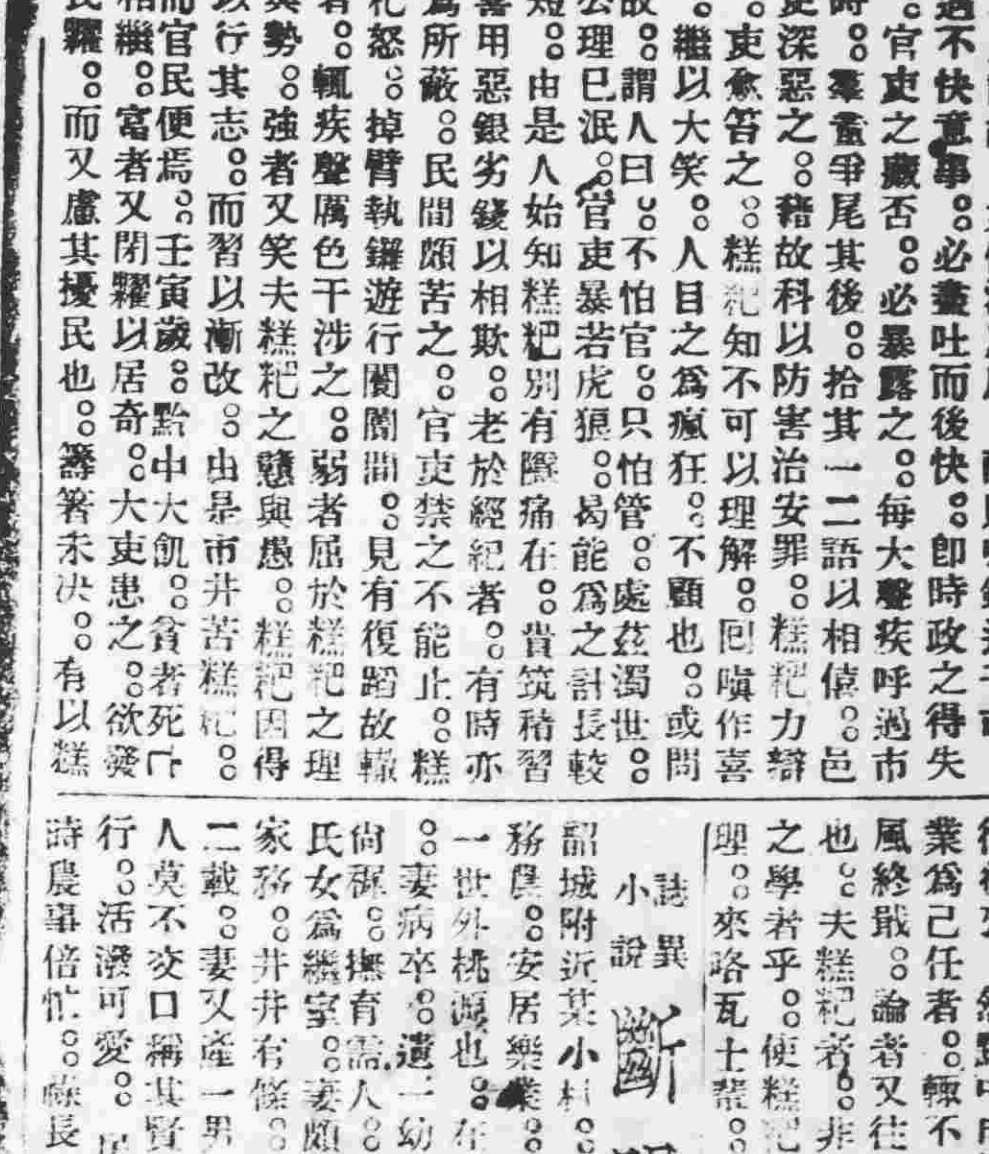 過不快意事。。必盡吐而後快。。卽時政之得失
。官吏之臧否。。必暴露之。。每大聲疾呼過市
時。。羣盡爭尾其後。。拾其一二語以相僖。。邑
吏深惡之。。藉故科以防害治安罪。。糕粑力辯
。吏愈笞之。。糕粑知不可以理解。。囘嗔作喜
。繼以大笑。。人目之爲瘋狂。。不顧也。。或問
故。。謂人曰。。不怕官。。只怕管。。處茲濁世。。
公理已泯。。官吏暴若虎狼。。曷能爲之計長較
短。。由是人始知糕粑別有隱痛在。。貴筑積習
喜用惡銀劣錢以相欺。。老於經紀者。。有時亦
爲所蔽。。民間頗苦之。。官吏禁之不能止。。糕
粑怒。。掉臂執鑼遊行闤闠間。。見有復蹈故轍
者。。輒疾聲厲色干涉之。。弱者屈於糕粑之理
與勢。。強者又笑夫糕粑之戇與愚。。糕粑因得
以行其志。。而習以漸改。。由是市井苦糕粑。。
而官民便焉。。壬寅歲。。黔中大飢。。貧者死亡
相繼。。富者又閉糶以居奇。。大吏患之。。欲發
民糶。。而又慮其擾民也。。籌箸未决。。有以糕
業爲己任者。。輒不
風終戢。。論者又往
也。。夫糕粑者。。非
之學者乎。。使糕粑
理。。來路瓦士裴。。
誌異
小說
斷
韶城附近某小村。。
務農。。安居樂業。。
一世外桃源也。。在
。。妻病卒。。遺二幼
尙穉。。撫育需人。。
氏女爲繼室。。妻頗
家務。。井井有條。。
二載。。妻又產一男
人莫不交口稱其賢
行。。活潑可愛。。
時農事倍忙。。 長